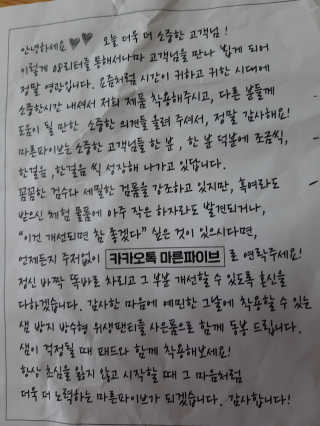 안녕하세요 ♥♥ 오늘 더욱 더 소중한 고객님!
이렇게 08리터를 통해서나마 고객님을 만나 뵙게 되어
정말 영광입니다. 요즘처럼 시간이 귀하고 귀한 시대에
소중한시간 내셔서 저희 제품 착용해주시고, 다른 분들께
도움이 될 만한 소중한 의견들 올려 주셔서, 정말 감사해요!
마른파이브는 소중한 고객님들 한 분, 한 분 덕분에 조금씩,
한걸음, 한걸음 씩 성장해 나가고 있답니다.
꼼꼼한 검수와 세밀한 검품을 강조하고 있지만, 혹여라도
받으신 체험 물품에 아주 작은 하자라도 발견되거나,
"이건 개선되면 참 좋겠다" 싶은 것이 있으시다면,
언제든지 주저없이 카카오톡 마른파이브 로 연락주세요!
정신 바짝 똑바로 차리고 그 부분 개선할 수 있도록 혼신을
다하겠습니다. 감사한 마음에 예민한 그날에 착용할 수 있는
샘 방지 방수형 위생팬티를 사은품으로 함께 동봉 드립니다.
샘이 걱정될 때 패드와 함께 착용해보세요!
항상 초심을 잃지 않고 시작할 때 그 마음처럼
더욱 더 노력하는 마른파이브가 되겠습니다. 감사합니다!